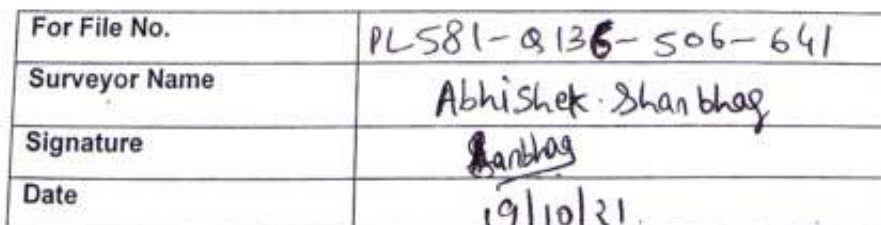 For File No. PL581-Q136-506-641
Surveyor Name Abhishek. Shanbhag
Signature Shanbhag
Date 19/10/21.